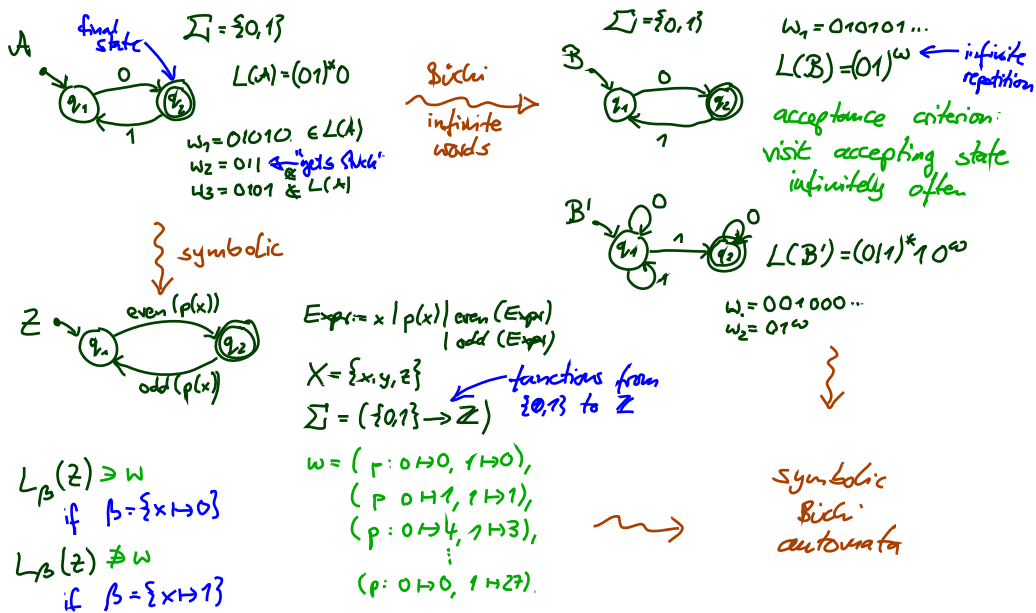 A
final
state
Σ = {0,1}
L(A) = (01)*0
q1
0
q2
1
w1 = 01010 ∈ L(A)
w2 = 011 "gets stuck"
w3 = 0101 ∉ L(A)
Büchi
infinite
words
B
Σ = {0,1}
q1
0
q2
1
w1 = 010101...
L(B) = (01)^ω
infinite
repetition
acceptance criterion:
visit accepting state
infinitely often
B'
q1
0
1
1
q2
0
L(B') = (0|1)*10^ω
w1 = 001000...
w2 = 01^ω
symbolic
Z
q1
even(p(x))
q2
odd(p(x))
Expr ::= x | p(x) | even(Expr)
| odd(Expr)
X = {x, y, z}
Σ = ({0,1} → ℤ)
functions from
{0,1} to ℤ
Lβ(Z) ∋ w
if β = {x ↦ 0}
Lβ(Z) ∌ w
if β = {x ↦ 1}
w = ( p: 0 ↦ 0, 1 ↦ 0),
( p 0 ↦ 1, 1 ↦ 1),
( p: 0 ↦ 4, 1 ↦ 3),
⋮
(p: 0 ↦ 0, 1 ↦ 27).
symbolic
Büchi
automata